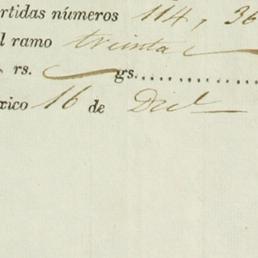 rtidas números 114, 36
l ramo treinta
rs. gs.
xico 16 de Dic.e